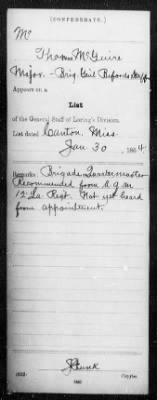 (CONFEDERATE.)
Mc
Thomas McGuire
Major - Brig. Genl Bufords Staff
Appears on a
List
of the General Staff of Loring's Division.
List dated Canton, Miss
Jan 30, 1864
Remarks: Brigade Quartermaster
Recommended from A.Q.M
12 La. Regt. Not yet heard
from appointment.
Copyist.